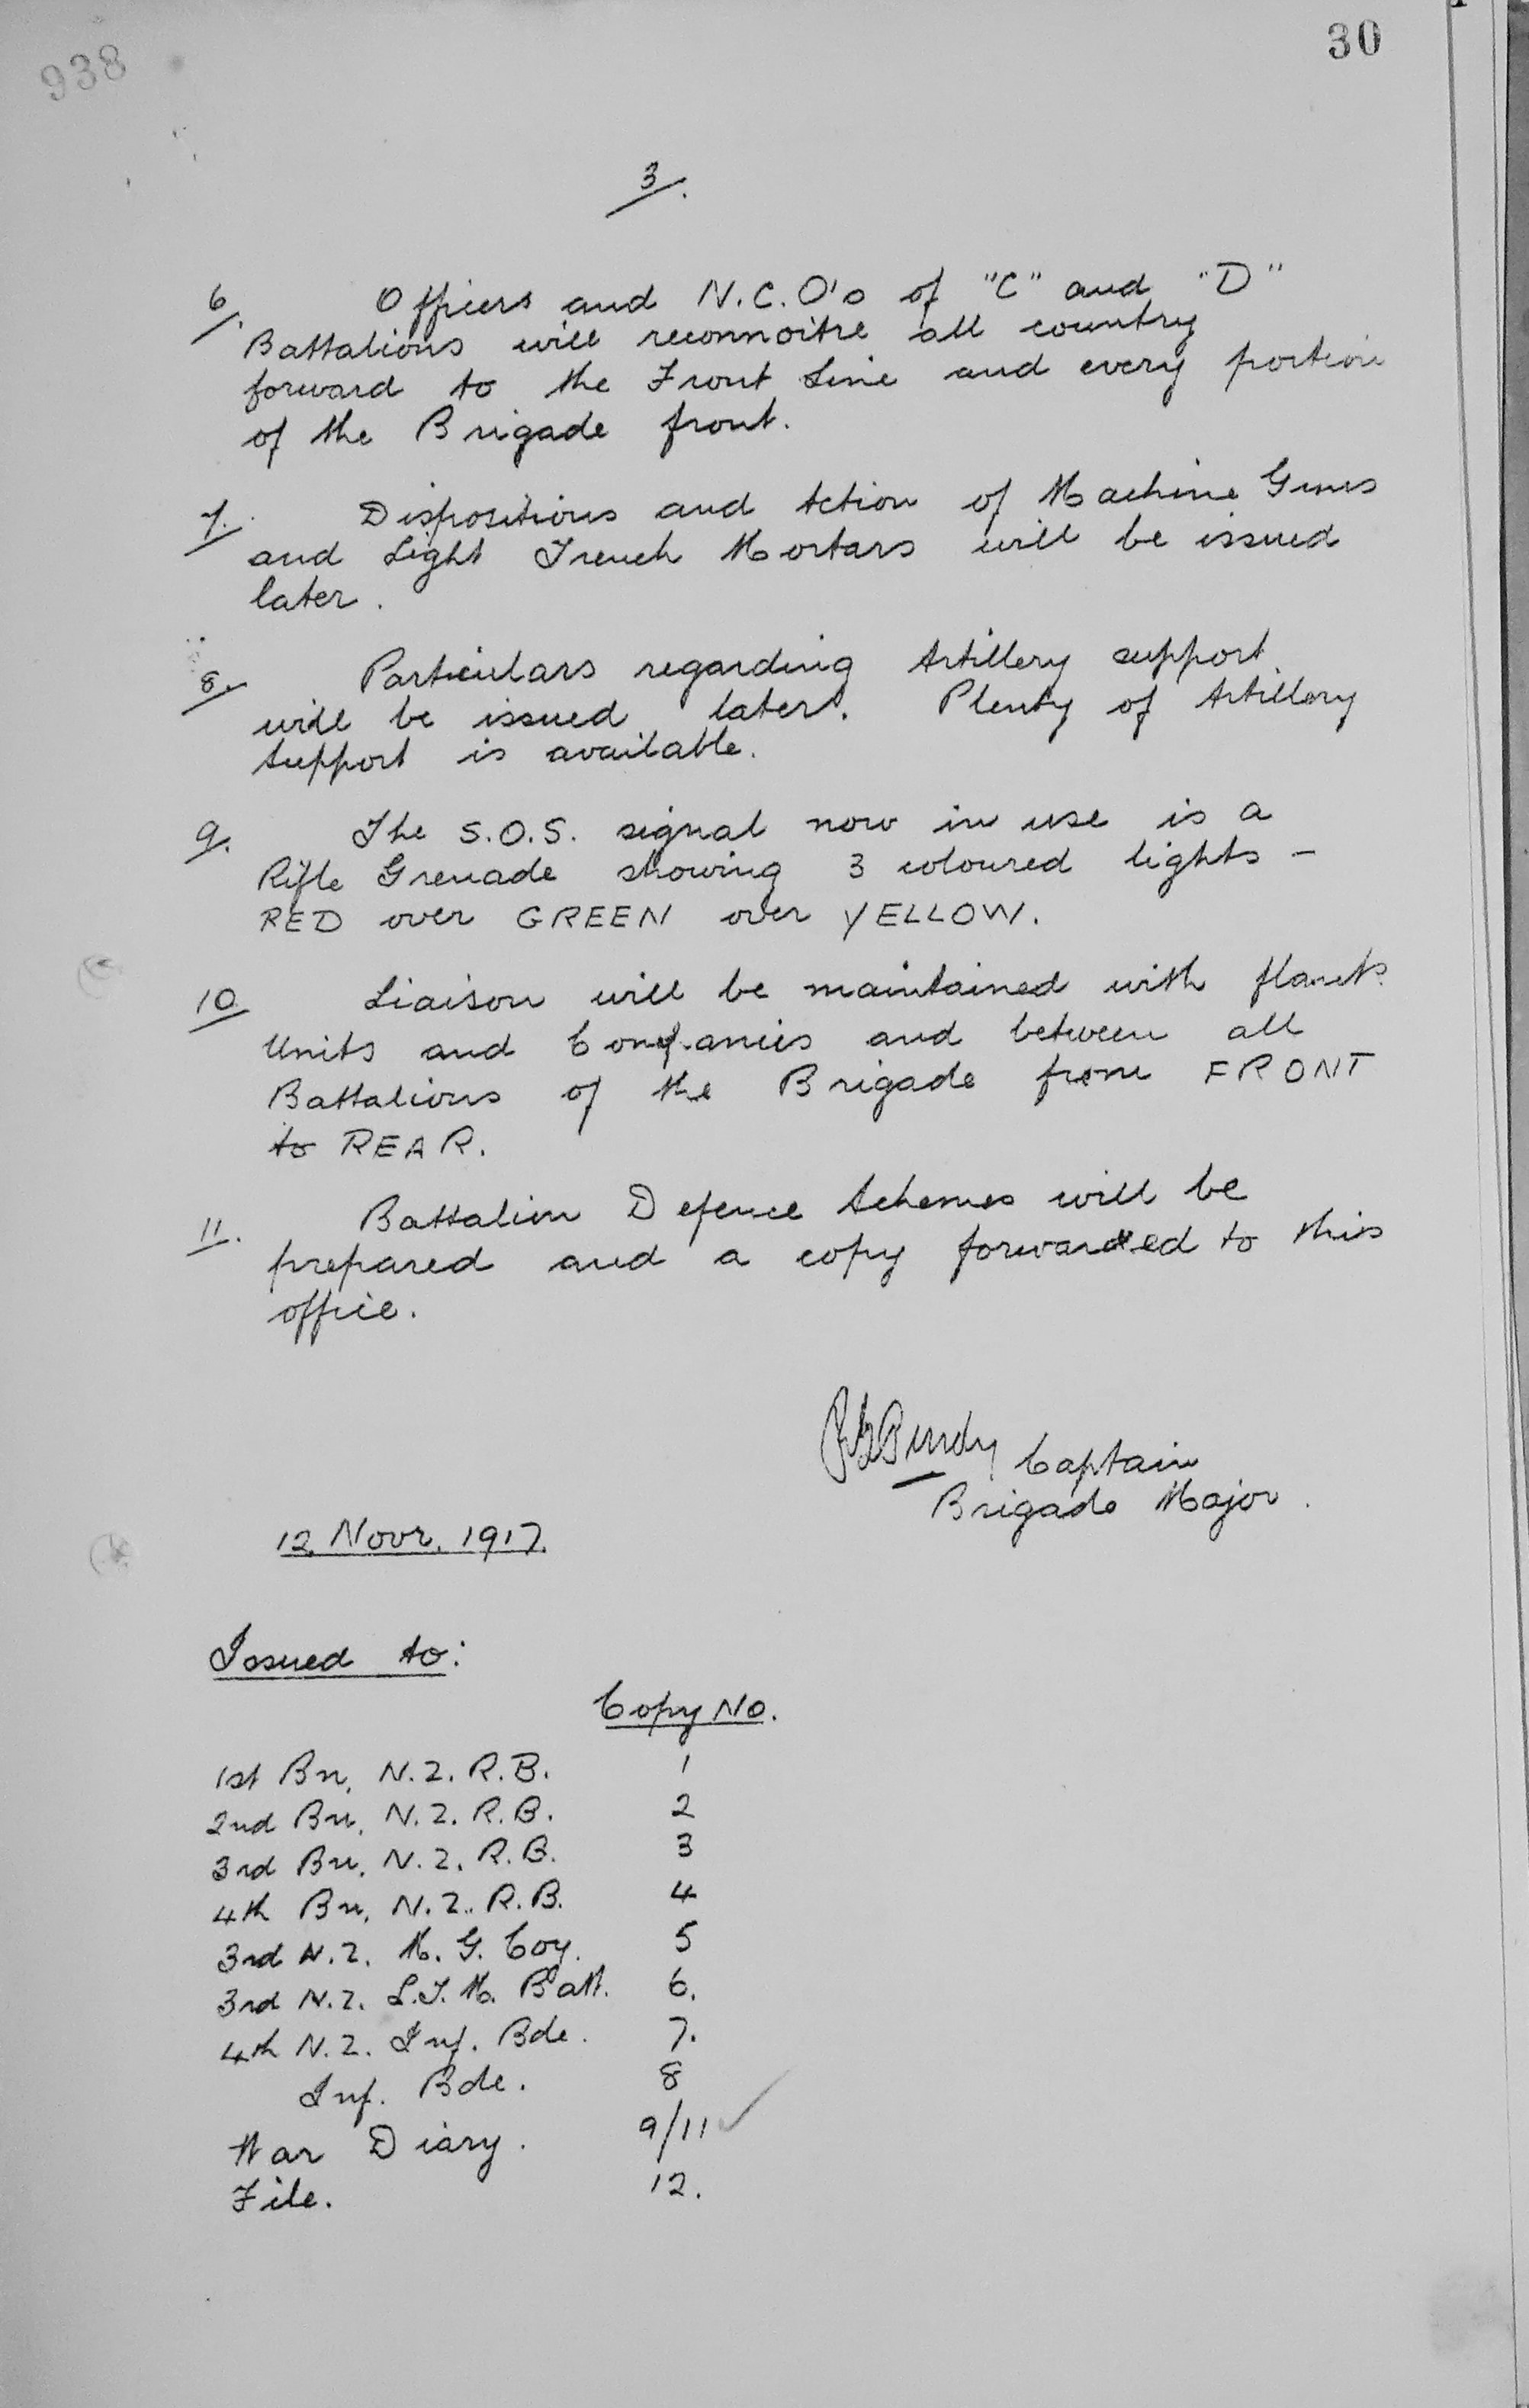 938
30
3/.
6/. Officers and N.C.O's of "C" and "D"
Battalions will reconnoitre all country
forward to the Front Line and every portion
of the Brigade front.
7/. Dispositions and Action of Machine Guns
and Light Trench Mortars will be issued
later.
8. Particulars regarding Artillery support
will be issued later. Plenty of Artillery
Support is available.
9. The S.O.S. signal now in use is a
Rifle Grenade showing 3 coloured lights -
RED over GREEN over YELLOW.
10 Liaison will be maintained with flank
Units and Companies and between all
Battalions of the Brigade from FRONT
to REAR.
11. Battalion Defence Schemes will be
prepared and a copy forwarded to this
office.
Captain
Brigade Major.
12 Novr. 1917.
Issued to:
Copy No.
1st Bn, N.Z. R.B. 1
2nd Bn, N.Z. R.B. 2
3rd Bn, N.Z. R.B. 3
4th Bn, N.Z. R.B. 4
3rd N.Z. M.G. Coy. 5
3rd N.Z. L.T.M. Batt. 6.
4th N.Z. Inf. Bde. 7.
Inf. Bde. 8
War Diary. 9/11
File. 12.